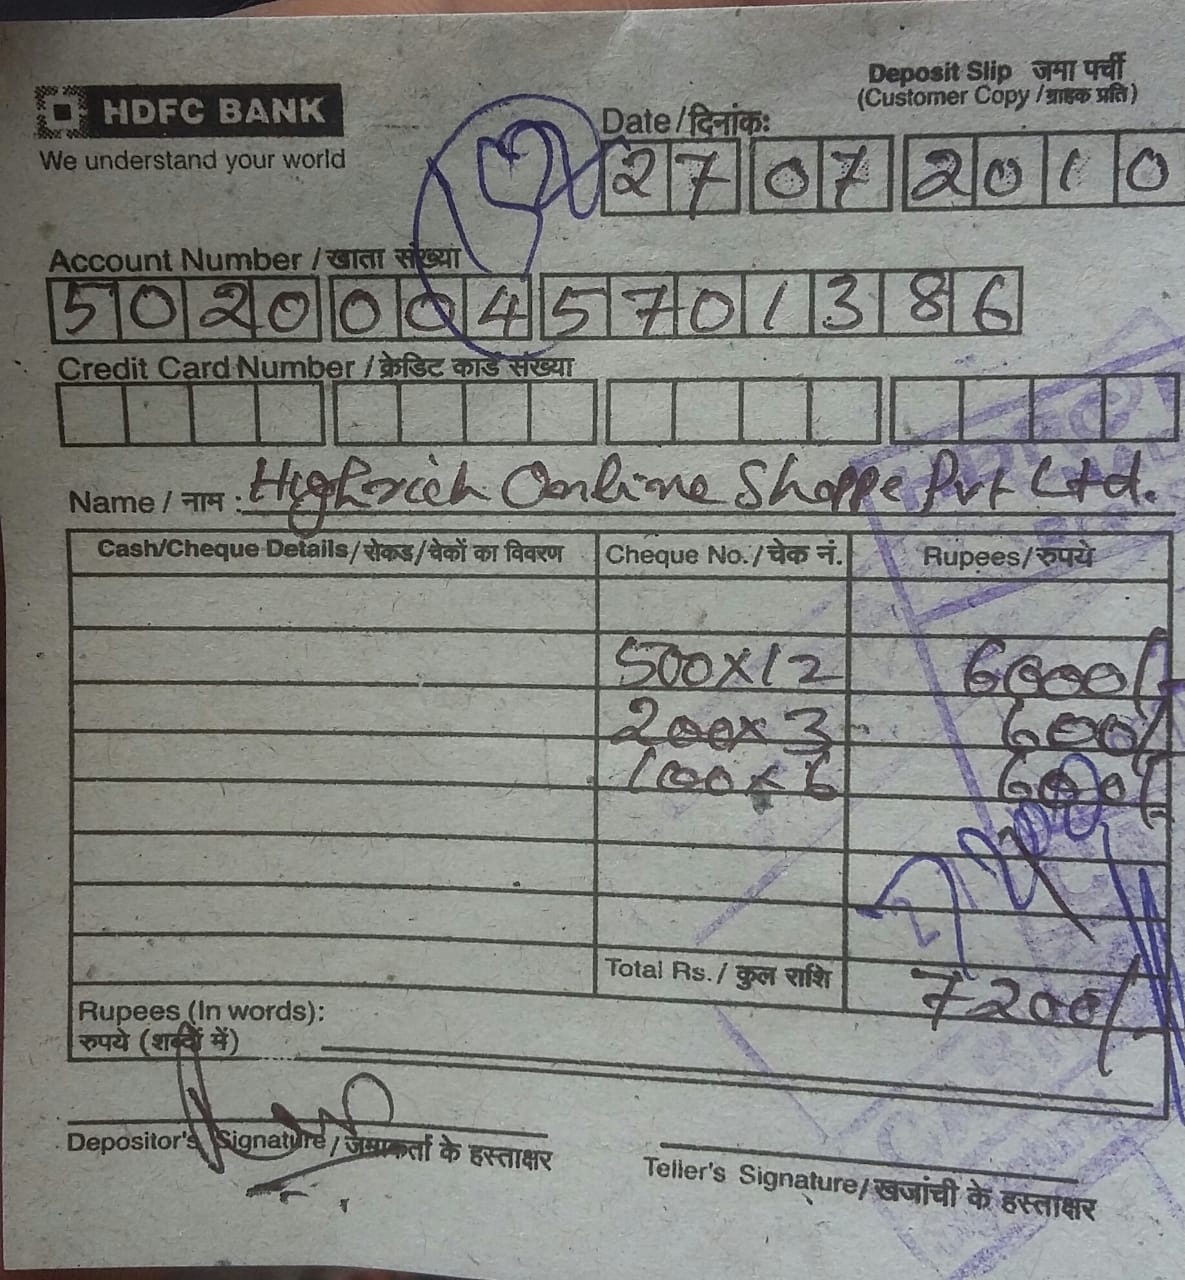 HDFC BANK
We understand your world
Deposit Slip जमा पर्ची
(Customer Copy / ग्राहक प्रति)
Date / दिनांक:
27 07 2010
Account Number / खाता संख्या
50200045701386
Credit Card Number / क्रेडिट कार्ड संख्या
Name / नाम : Highrich Online Shoppe Pvt Ltd.
Cash/Cheque Details / रोकड / चेकों का विवरण Cheque No. / चेक नं. Rupees / रुपये
500x12 6000/-
200x3 600/-
100x6 600/-
Total Rs. / कुल राशि 7200/
Rupees (In words):
रुपये (शब्दों में)
Depositor's Signature / जमाकर्ता के हस्ताक्षर
Teller's Signature / खजांची के हस्ताक्षर